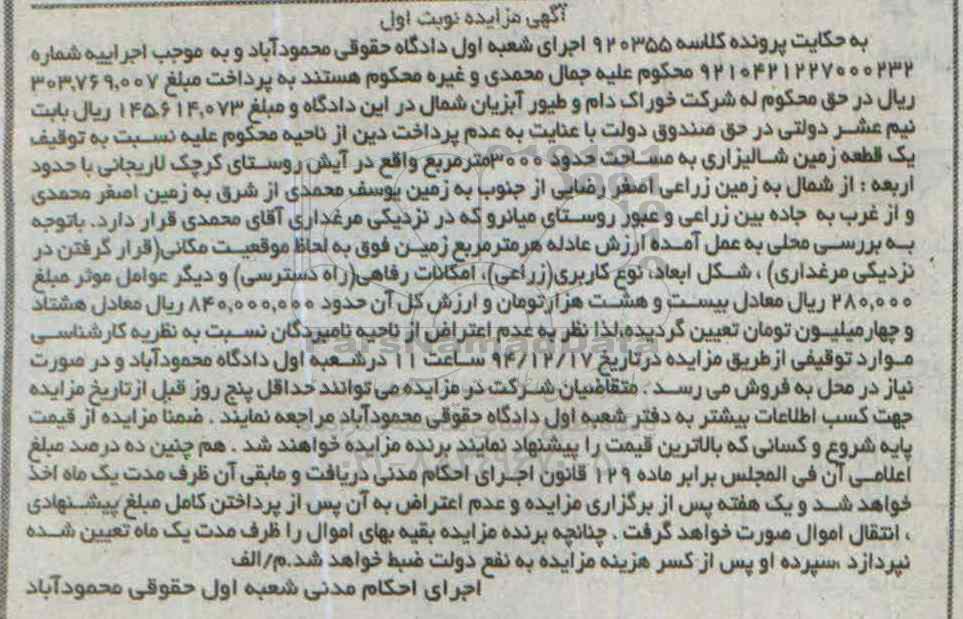 آگهی مزایده نوبت اول
به حکایت پرونده کلاسه ۹۲۰۳۵۵ اجرای شعبه اول دادگاه حقوقی محمودآباد و به موجب اجراییه شماره
۹۲۱۰۴۲۱۲۲۷۰۰۰۲۳۲ محکوم علیه جمال محمدی و غیره محکوم هستند به پرداخت مبلغ ۳۰۳,۷۶۹,۰۰۷
ریال در حق محکوم له شرکت خوراک دام و طیور آبزیان شمال در این دادگاه و مبلغ ۱۴۵,۶۱۴,۰۷۳ ریال بابت
نیم عشر دولتی در حق صندوق دولت با عنایت به عدم پرداخت دین از ناحیه محکوم علیه نسبت به توقیف
یک قطعه زمین شالیزاری به مساحت حدود ۳۰۰۰مترمربع واقع در آیش روستای کرچک لاریجانی با حدود
اربعه : از شمال به زمین زراعی اصغر رضایی از جنوب به زمین یوسف محمدی از شرق به زمین اصغر محمدی
و از غرب به جاده بین زراعی و عبور روستای میانرو که در نزدیکی مرغداری آقای محمدی قرار دارد. باتوجه
به بررسی محلی به عمل آمده ارزش عادله هرمترمربع زمین فوق به لحاظ موقعیت مکانی(قرار گرفتن در
نزدیکی مرغداری) ، شکل ابعاد، نوع کاربری(زراعی)، امکانات رفاهی(راه دسترسی) و دیگر عوامل موثر مبلغ
۲۸۰,۰۰۰ ریال معادل بیست و هشت هزارتومان و ارزش کل آن حدود ۸۴۰,۰۰۰,۰۰۰ ریال معادل هشتاد
و چهارمیلیون تومان تعیین گردیده،لذا نظر به عدم اعتراض از ناحیه نامبردگان نسبت به نظریه کارشناسی
موارد توقیفی ازطریق مزایده درتاریخ ۹۴/۱۲/۱۷ ساعت ۱۱ درشعبه اول دادگاه محمودآباد و در صورت
نیاز در محل به فروش می رسد . متقاضیان شرکت در مزایده می توانند حداقل پنج روز قبل ازتاریخ مزایده
جهت کسب اطلاعات بیشتر به دفتر شعبه اول دادگاه حقوقی محمودآباد مراجعه نمایند . ضمنا مزایده از قیمت
پایه شروع و کسانی که بالاترین قیمت را پیشنهاد نمایند برنده مزایده خواهند شد . هم چنین ده درصد مبلغ
اعلامی آن فی المجلس برابر ماده ۱۲۹ قانون اجرای احکام مدنی دریافت و مابقی آن ظرف مدت یک ماه اخذ
خواهد شد و یک هفته پس از برگزاری مزایده و عدم اعتراض به آن پس از پرداختن کامل مبلغ پیشنهادی
، انتقال اموال صورت خواهد گرفت . چنانچه برنده مزایده بقیه بهای اموال را ظرف مدت یک ماه تعیین شده
نپردازد ،سپرده او پس از کسر هزینه مزایده به نفع دولت ضبط خواهد شد.م/الف
اجرای احکام مدنی شعبه اول حقوقی محمودآباد
ParsNamadData